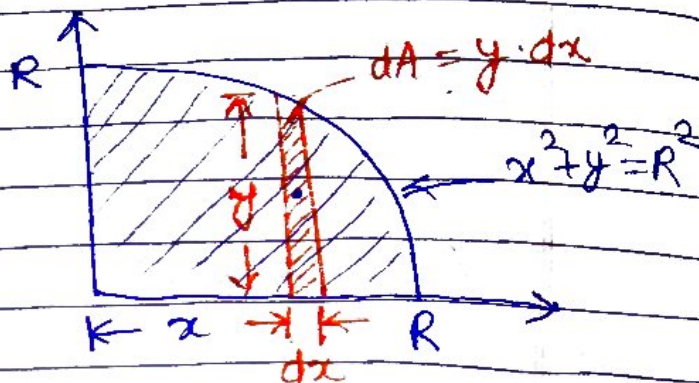 R
dA = y·dx
x²+y²=R²
y
x
R
dx